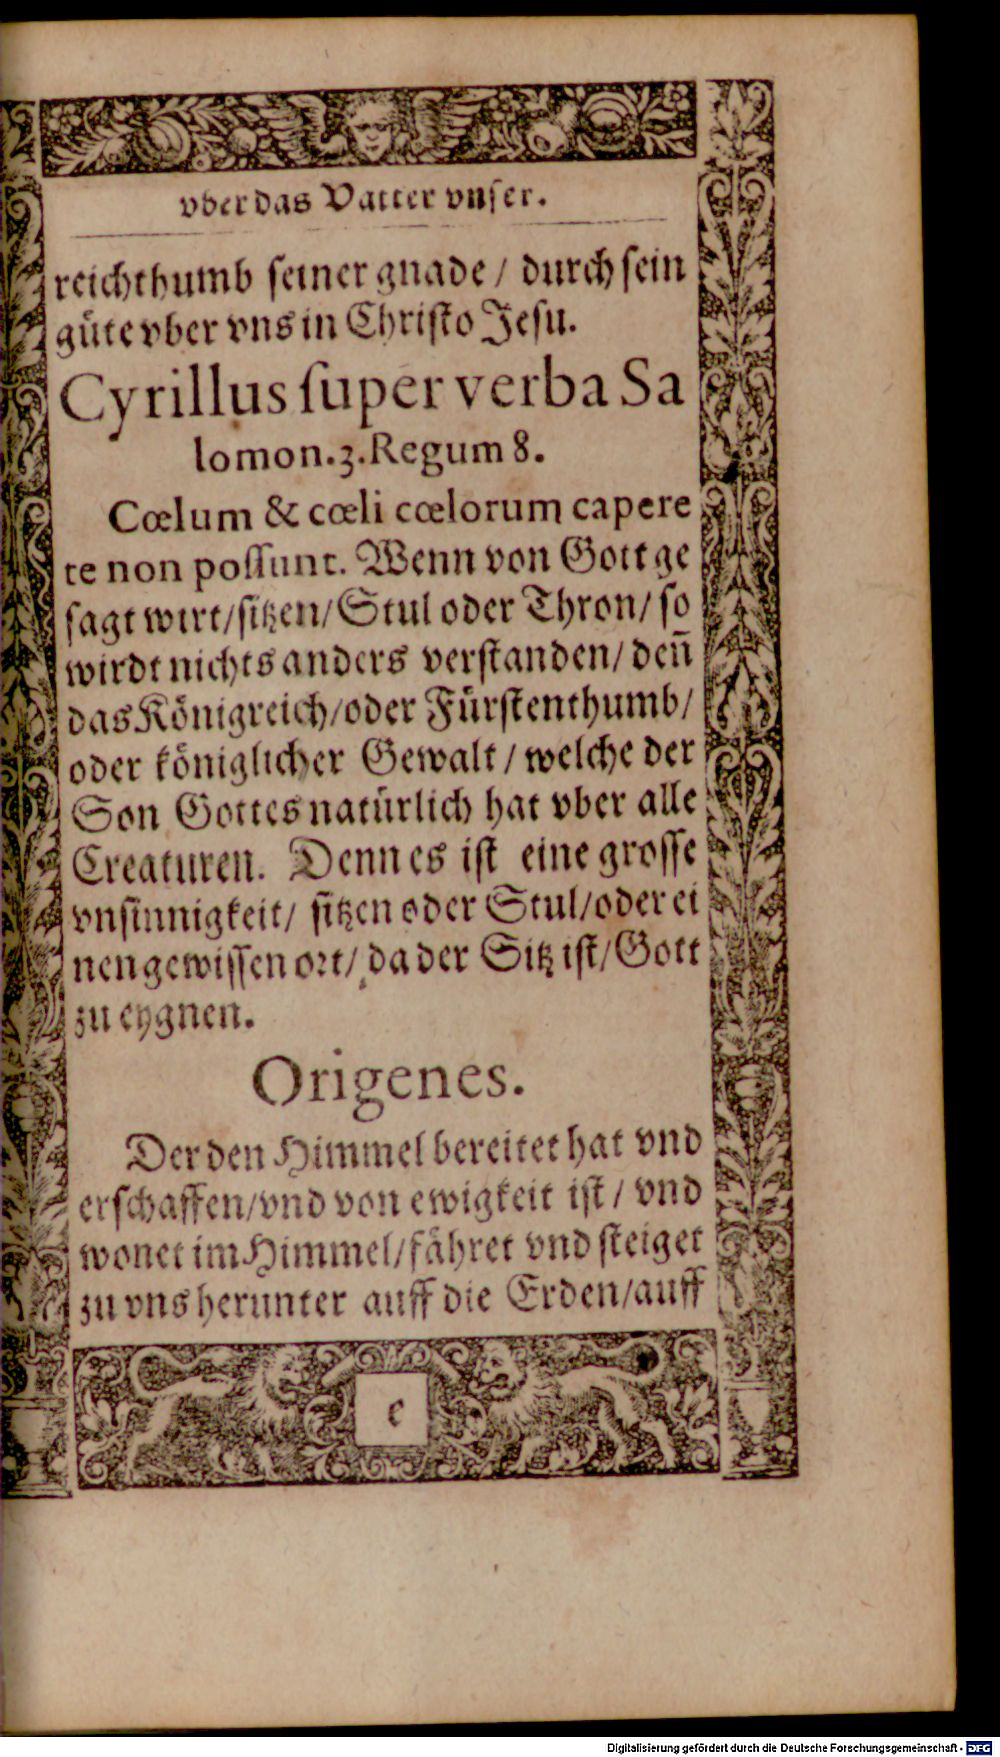 vber das Vatter vnser.
reichthumb seiner gnade / durch sein
güte vber vns in Christo Jesu.
Cyrillus ſuper verba Sa
lomon.3.Regum 8.
Cœlum & cœli cœlorum capere
te non poſſunt. Wenn von Gott ge
sagt wirt/sitzen/Stul oder Thron/ so
wirdt nichts anders verstanden/ deñ
das Königreich/oder Fürstenthumb/
oder königlicher Gewalt / welche der
Son Gottes natürlich hat vber alle
Creaturen. Denn es ist eine grosse
vnsinnigkeit/ sitzen oder Stul/oder ei
nen gewissen ort/ da der Sitz ist/Gott
zu eygnen.
Origenes.
Der den Himmel bereitet hat vnd
erschaffen/vnd von ewigkeit ist / vnd
wonet im Himmel/fähret vnd steiget
zu vns herunter auff die Erden/auff
e
Digitalisierung gefördert durch die Deutsche Forschungsgemeinschaft - DFG